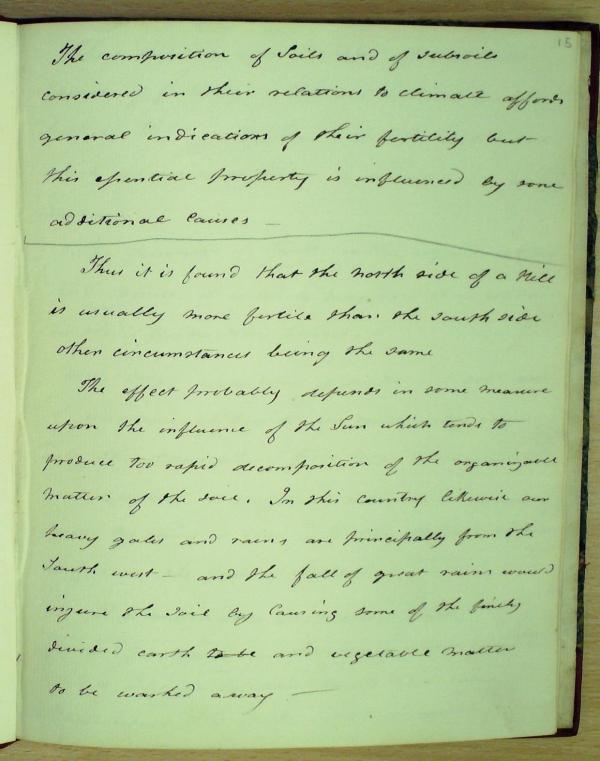 15
The composition of Soils and of subsoils
considered in their relations to climate affords
general indications of their fertility but
this essential property is influenced by some
additional causes —
Thus it is found that the north side of a Hill
is usually more fertile than the south side
other circumstances being the same
The effect probably depends in some measure
upon the influence of the Sun which tends to
produce too rapid decomposition of the organizable
matter of the soil. In this country likewise our
heavy gales and rains are principally from the
South west — and the fall of great rains would
injure the soil by Causing some of the finely
divided earth to be and vegetable matter
to be washed away —